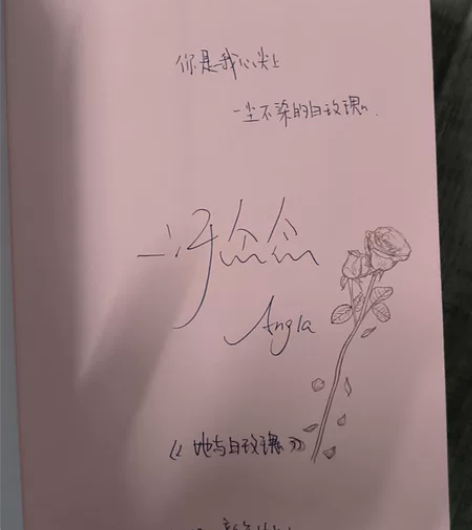 你是我心尖上
一尘不染的白玫瑰。
Angla
《她与白玫瑰》